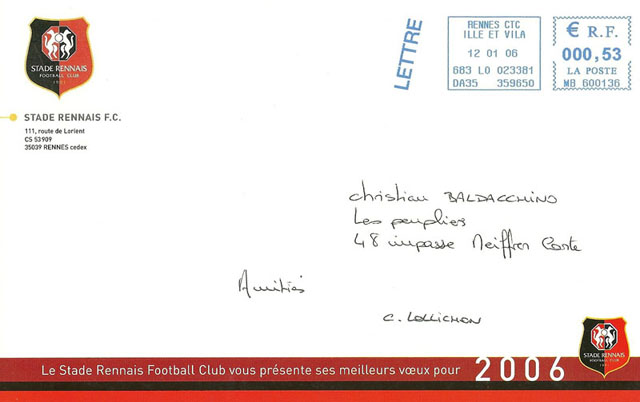 STADE RENNAIS
FOOTBALL CLUB
1901
LETTRE
RENNES CTC
ILLE ET VILA
12 01 06
683 L0 023381
DA35 359650
€ R.F.
000,53
LA POSTE
MB 600136
STADE RENNAIS F.C.
111, route de Lorient
CS 53909
35039 RENNES cedex
Christian BALDACCHINO
Les peupliers
48 impasse Meiffren Conte
Amitiés
C. LOLLICHON
Le Stade Rennais Football Club vous présente ses meilleurs vœux pour 2006
STADE RENNAIS
FOOTBALL CLUB